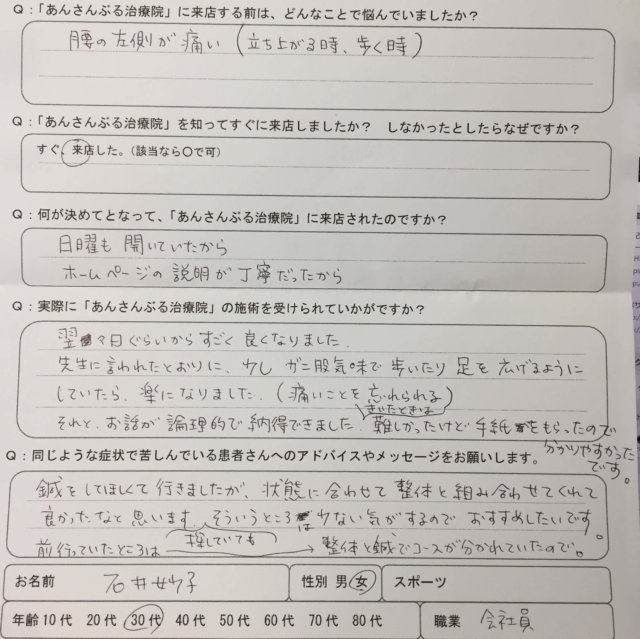 Q：「あんさんぶる治療院」に来店する前は、どんなことで悩んでいましたか？
腰の左側が痛い（立ち上がる時、歩く時）
Q：「あんさんぶる治療院」を知ってすぐに来店しましたか？　しなかったとしたらなぜですか？
すぐ、来店した。（該当なら〇で可）
Q：何が決めてとなって、「あんさんぶる治療院」に来店されたのですか？
日曜も開いていたから
ホームページの説明が丁寧だったから
Q：実際に「あんさんぶる治療院」の施術を受けられていかがですか？
翌々日ぐらいからすごく良くなりました.
先生に言われたとおりに、少し ガニ股気味で歩いたり 足を広げるように
していたら、楽になりました.（痛いことを忘れられる）
きいたときは
それと、お話が論理的で納得できました. 難しかったけど手紙をもらったので
分かりやすかった
です。
Q：同じような症状で苦しんでいる患者さんへのアドバイスやメッセージをお願いします。
鍼をしてほしくて行きましたが、状態に合わせて整体と組み合わせてくれて
良かったなと思います。そういうところは少ない気がするので おすすめしたいです。
探していても
前行っていたところは 整体と鍼でコースが分かれていたので。
お名前 石井 子 性別 男 女 スポーツ
年齢 10代 20代 30代 40代 50代 60代 70代 80代 職業 会社員